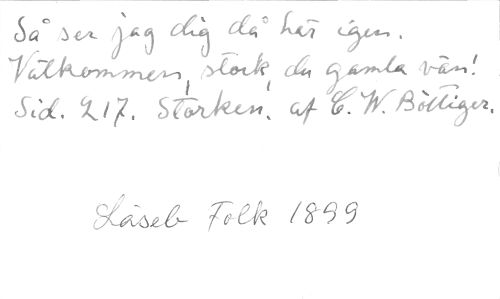 Så ser jag dig då här igen.
Välkommen, stork, du gamla vän!
Sid. 217. Storken, af C. W. Böttiger.
Läseb Folk 1899